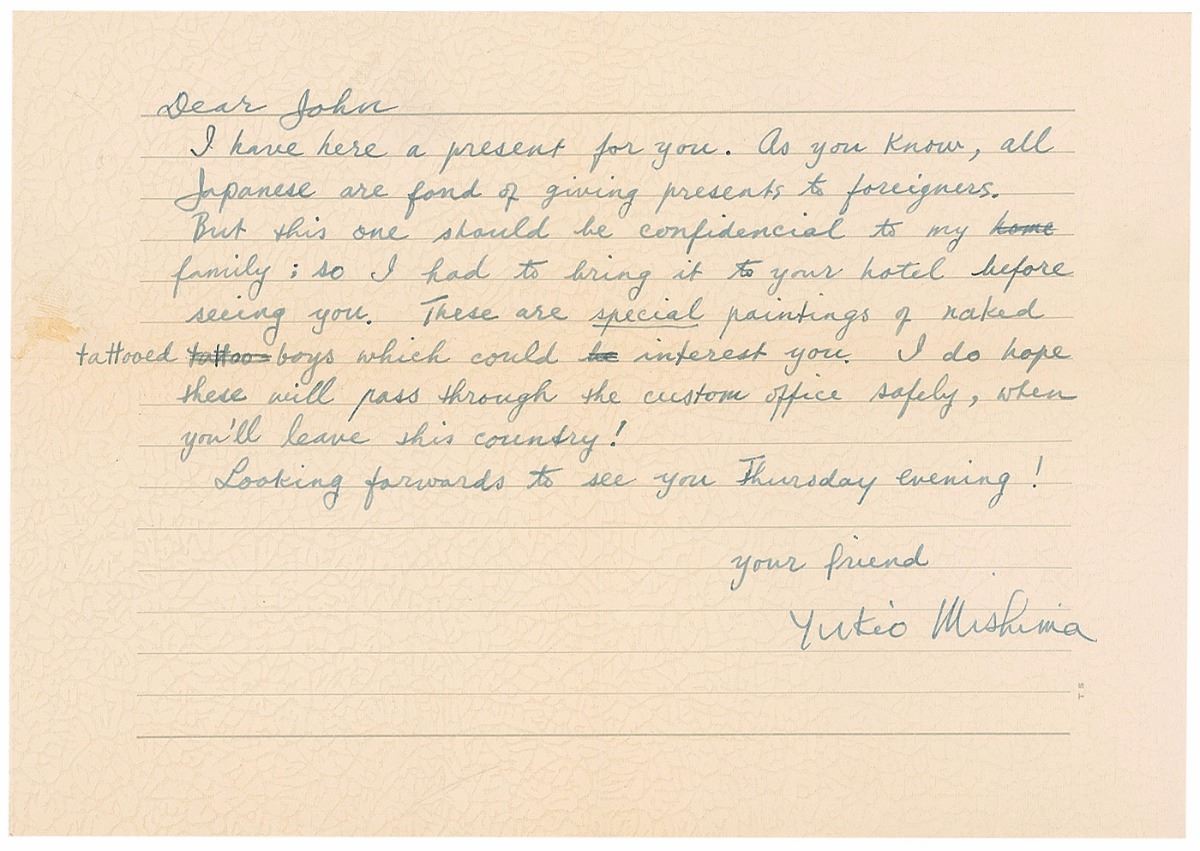 Dear John
I have here a present for you. As you know, all
Japanese are fond of giving presents to foreigners.
But this one should be confidencial to my home
family; so I had to bring it to your hotel before
seeing you. These are special paintings of naked
tattooed tattoo boys which could be interest you. I do hope
these will pass through the custom office safely, when
you'll leave this country!
Looking forwards to see you Thursday evening!
your friend
Yukio Mishima
TS